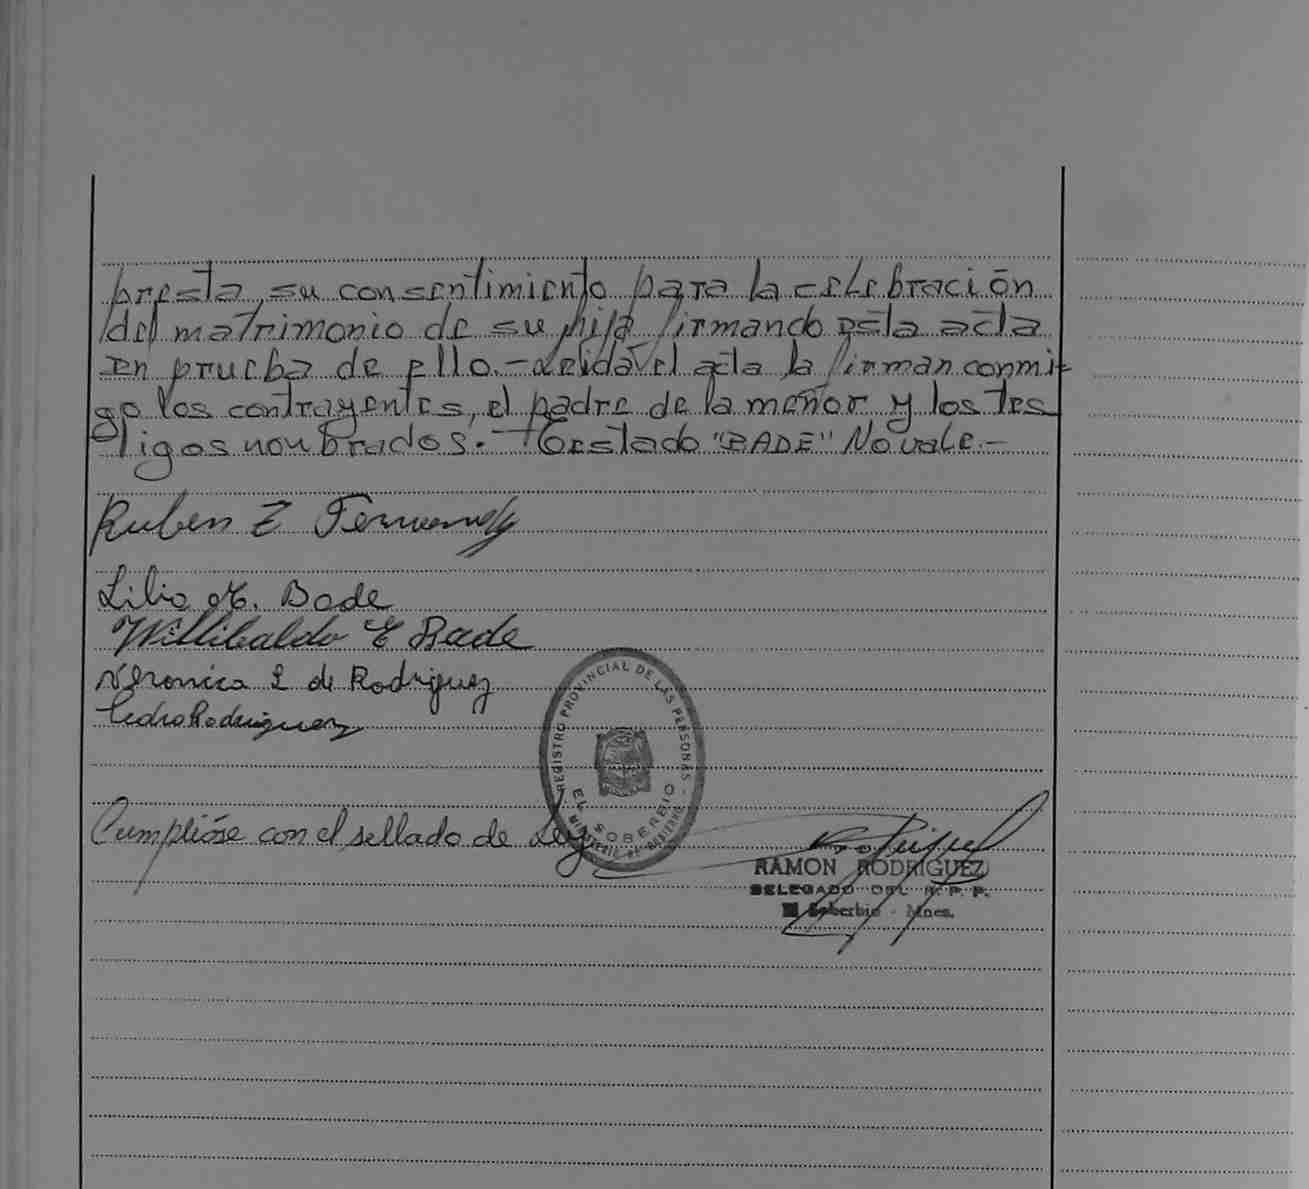 presta su consentimiento para la celebración
del matrimonio de su hija firmando esta acta
en prueba de ello.- Leida el acta la firman conmi-
go los contrayentes, el padre de la menor y los tes
tigos nonbrados.- Testado "BADE" No vale.-
Ruben E Fernandez
Lilia M. Bade
Willibaldo E Bade
Veronica L de Rodriguez
Pedro Rodriguez
REGISTRO PROVINCIAL DE LAS PERSONAS
EL SOBERBIO
MINISTERIO DE GOBIERNO
Cumplióse con el sellado de Ley
RAMON RODRIGUEZ
DELEGADO DEL R. P. P.
El Soberbio - Mnes.